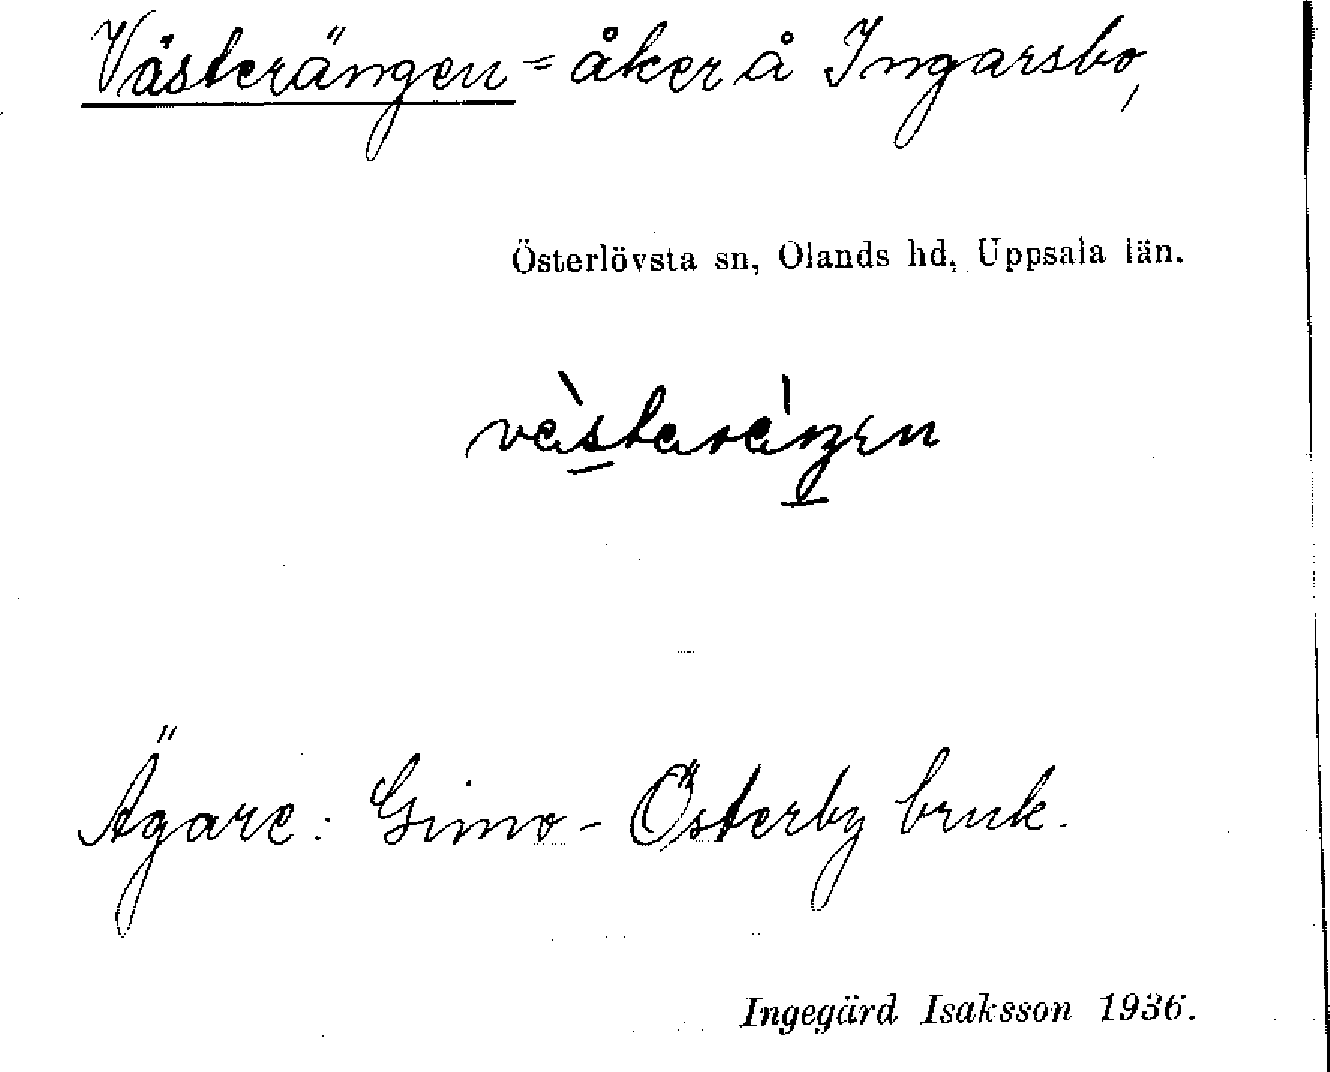 Västerängen = åker å Ingarsbo,
Österlövsta sn, Olands hd, Uppsala län.
vàsterèŋen
Ägare: Gimo-Österby bruk.
Ingegärd Isaksson 1936.